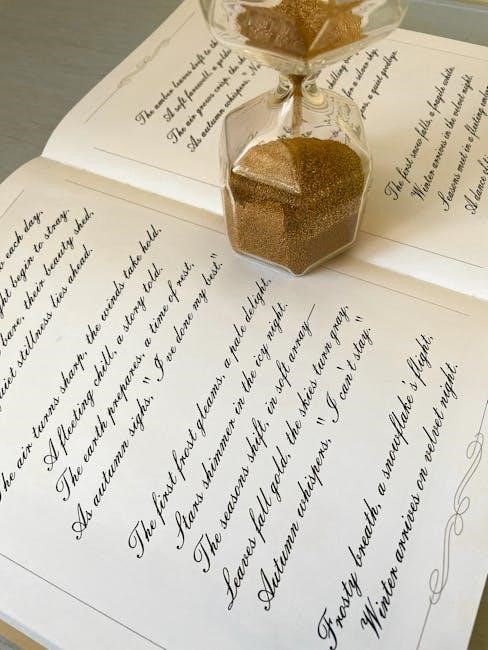 The amber leaves drift to th
A soft farewell, a gold
The air grows crisp, the
As autumn whispers, "
a quiet goodbye.
The first snow falls, a fragile white,
Winter arrives in the velvet night.
Seasons meet in a fleeting
A dance
each day,
ght begin to stray.
bare, their beauty shed,
quiet stillness lies ahead.
The air turns sharp, the winds take hold,
A fleeting chill, a story told.
The earth prepares, a time of rest,
As autumn sighs, "I've done my best."
The first frost gleams, a pale delight,
Stars shimmer in the icy night.
The seasons shift, in soft array—
Leaves fall gold, the skies turn gray,
Autumn whispers, "I can't stay."
Frosty breath, a snowflake's flight,
Winter arrives on velvet night.